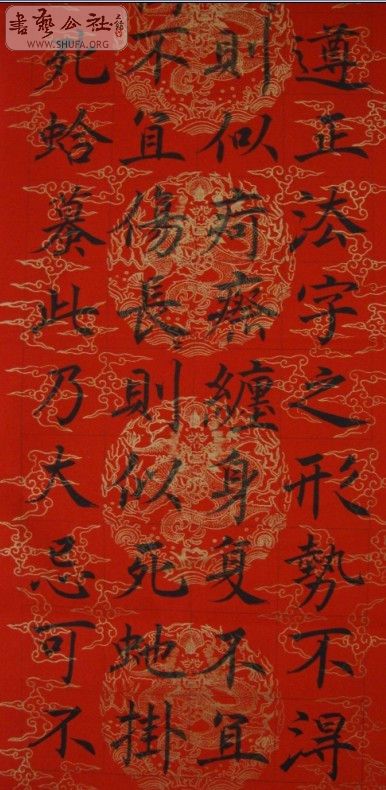 書藝公社
WWW.SHUFA.ORG
遵正法字之形勢不淂
則似疴瘵纏身复不宜
不宜傷長則似死虵掛
死蛤蟇此乃大忌可不